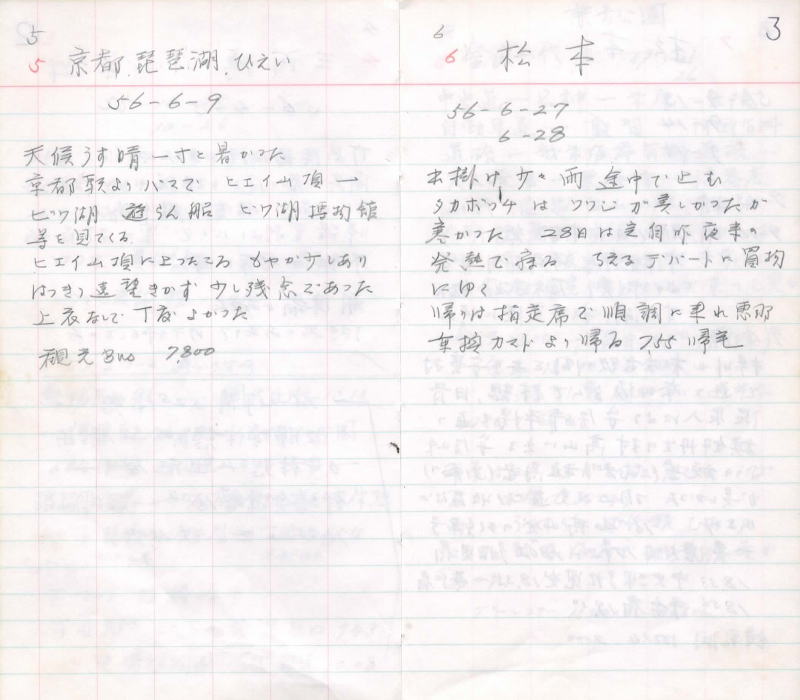 5
5 京都.琵琶湖.ひえい
56-6-9
天候うす晴 一寸と暑かつた
京都駅よりバスで ヒエイ山頂ー
ビワ湖 遊らん船 ビワ湖博物館
等を見てくる.
ヒエイ山頂に上つたころ もやが少しあり
はつきり遠望きかず 少し残念であつた
上衣なしで丁度よかつた
観光Bus 7,800
3
6
6 松本
56-6-27
6-28
出掛け少々雨 途中で止む
タカボッチはツツジが美しかつたが
寒かつた 28日は定自昨夜来の
発熱で寝る ちえるデパートに買物
にゆく
帰りは指定席で順調に来れ恵那
乗換カマドより帰る 7,55 帰宅